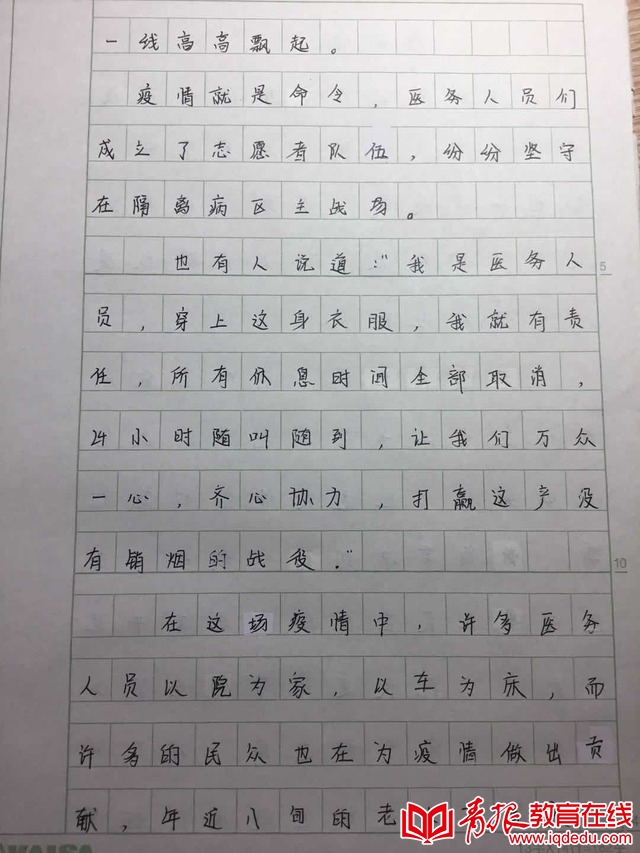 一线高高飘起。
疫情就是命令，医务人员们
成立了志愿者队伍，纷纷坚守
在隔离病区主战场。
也有人说道："我是医务人
5
员，穿上这身衣服，我就有责
任，所有休息时间全部取消，
24小时随叫随到，让我们万众
一心，齐心协力，打赢这产没
有销烟的战役."
10
在这场疫情中，许多医务
人员以院为家，以车为床，而
许多的民众也在为疫情做出贡
献，年近八旬的老
青报教育在线
www.iqdedu.com